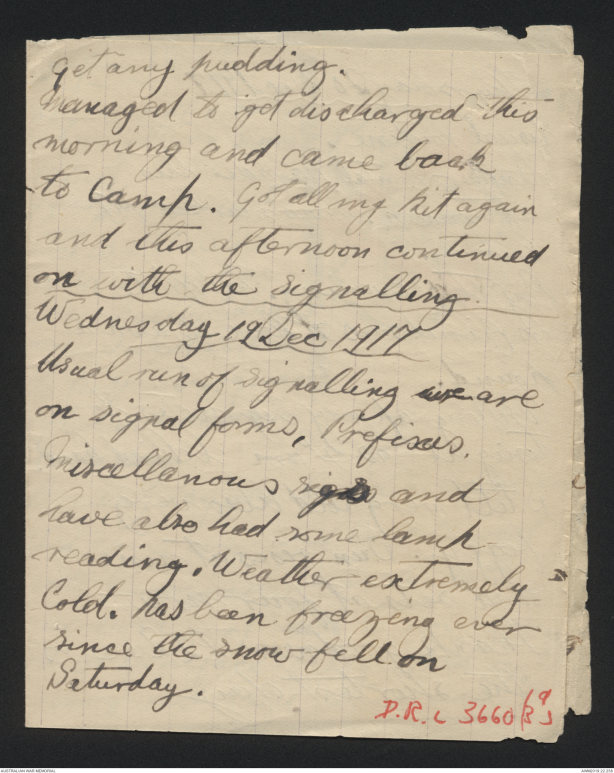 get any pudding.
Managed to get discharged this
morning and came back
to Camp. Got all my kit again
and this afternoon continued
on with the signalling
Wednesday 19 Dec 1917
Usual run of signalling we are
on signal forms, Prefixes.
Miscellanous signs and
have also had some lamp
reading. Weather extremely
Cold. has been freezing ever
since the snow fell on
Saturday.
D.R.L 3660
AUSTRALIAN WAR MEMORIAL